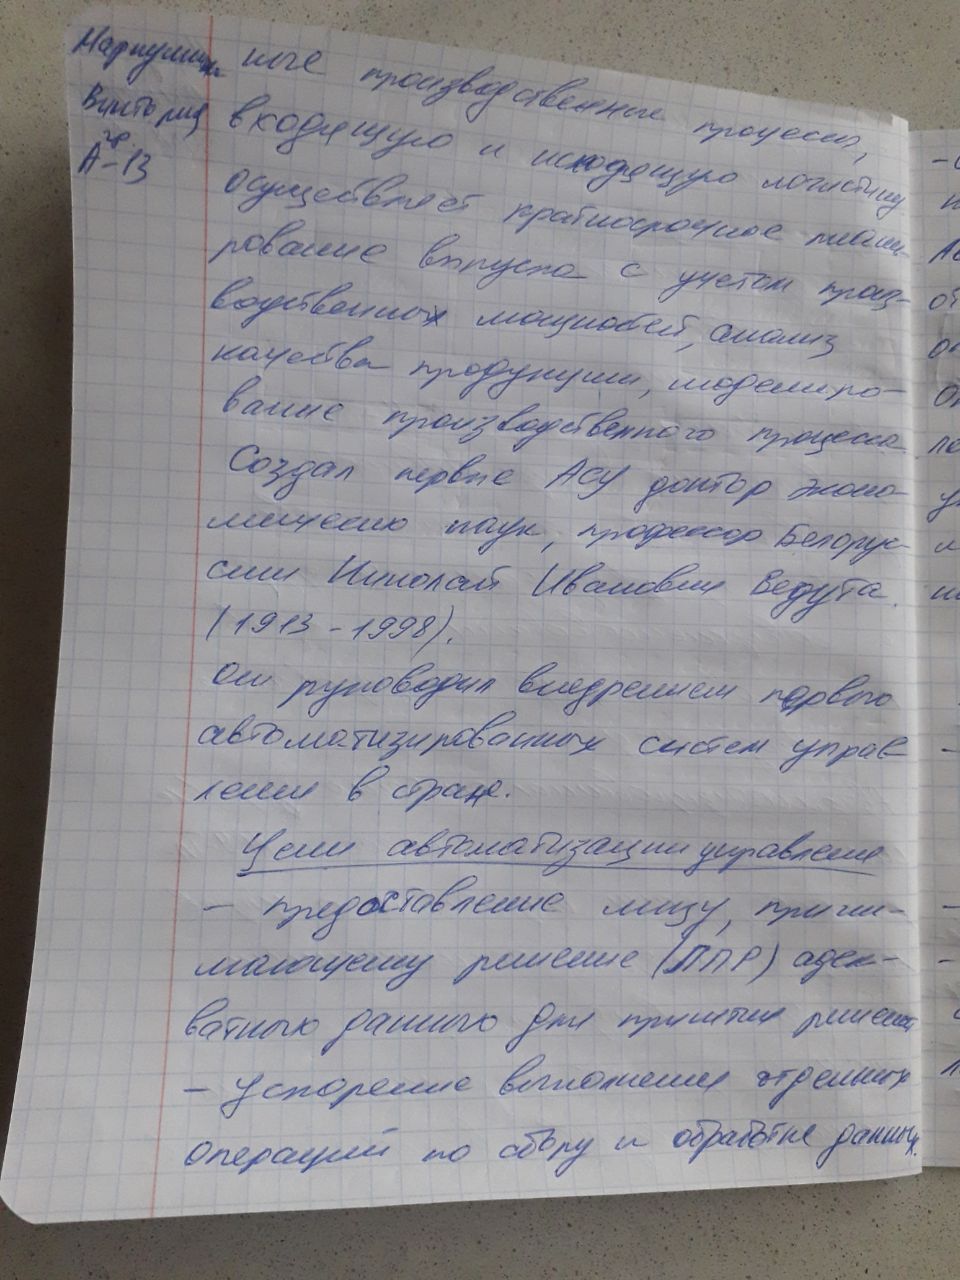 Виктория
гр.
А-13
ные производственные процессы,
входящую и исходящую логистику
осуществляет краткосрочное плани-
рование выпуска с учетом произ-
водственных мощностей, анализ
качества продукции, моделиро-
вание производственного процесса
Создал первые АСУ доктор эконо-
мических наук, профессор Белорус-
сии Николай Иванович Ведута.
(1913-1998).
Он руководил внедрением первых
автоматизированных систем управ
ления в стране.
Цели автоматизации управления
- предоставление лицу, прини-
мающему решение (ЛПР) адек-
ватных данных для принятия решений
- Ускорение выполнения отдельных
операций по сбору и обработке данных.